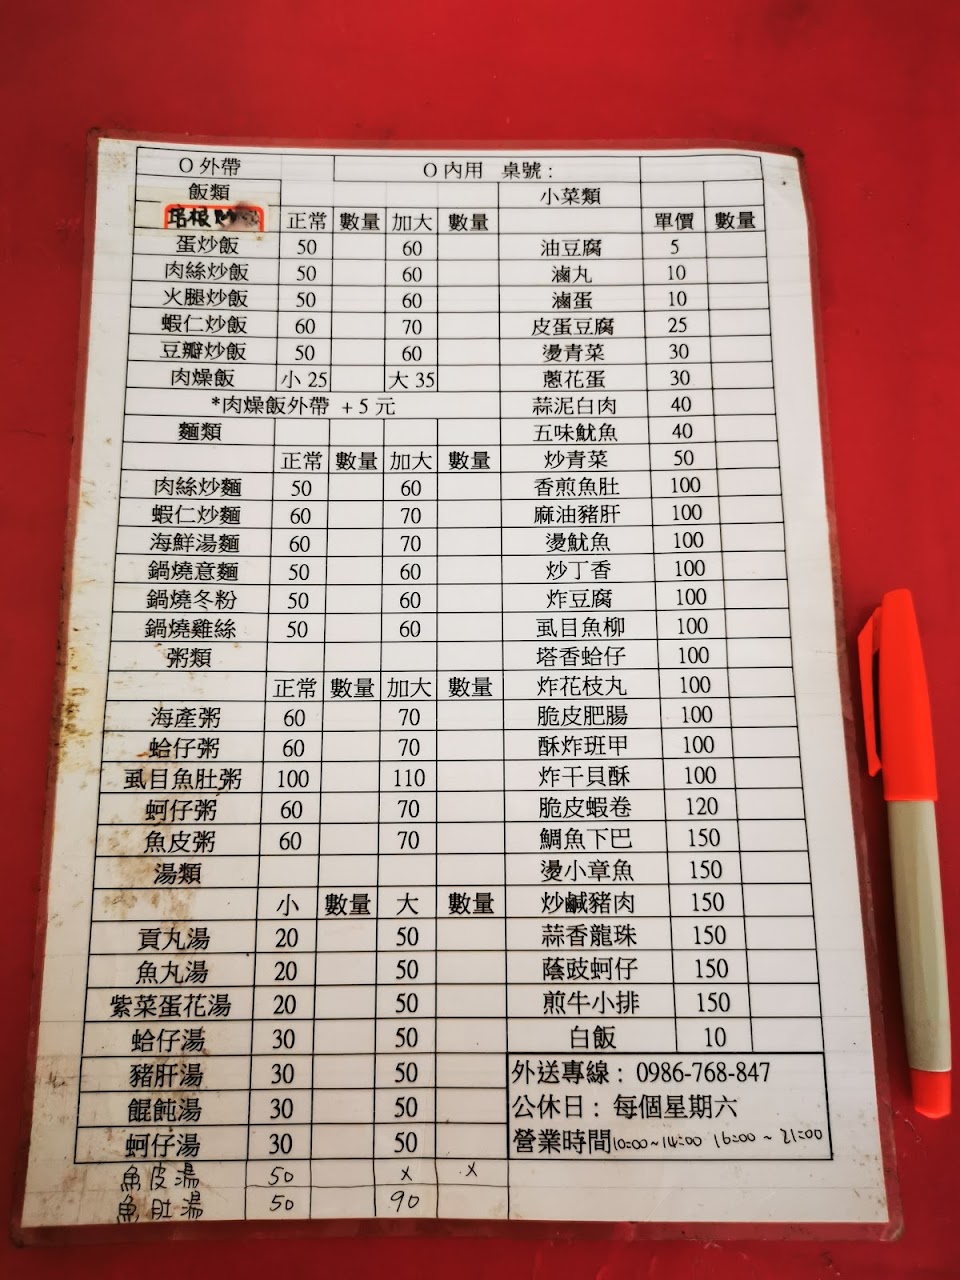 O 外帶 O 內用 桌號:
飯類 小菜類
培根炒
正常 數量 加大 數量 單價 數量
蛋炒飯 50 60 油豆腐 5
肉絲炒飯 50 60 滷丸 10
火腿炒飯 50 60 滷蛋 10
蝦仁炒飯 60 70 皮蛋豆腐 25
豆瓣炒飯 50 60 燙青菜 30
肉燥飯 小 25 大 35 蔥花蛋 30
*肉燥飯外帶 + 5 元 蒜泥白肉 40
麵類 五味魷魚 40
正常 數量 加大 數量 炒青菜 50
肉絲炒麵 50 60 香煎魚肚 100
蝦仁炒麵 60 70 麻油豬肝 100
海鮮湯麵 60 70 燙魷魚 100
鍋燒意麵 50 60 炒丁香 100
鍋燒冬粉 50 60 炸豆腐 100
鍋燒雞絲 50 60 虱目魚柳 100
粥類 塔香蛤仔 100
正常 數量 加大 數量 炸花枝丸 100
海產粥 60 70 脆皮肥腸 100
蛤仔粥 60 70 酥炸班甲 100
虱目魚肚粥 100 110 炸干貝酥 100
蚵仔粥 60 70 脆皮蝦卷 120
魚皮粥 60 70 鯛魚下巴 150
湯類 燙小章魚 150
小 數量 大 數量 炒鹹豬肉 150
貢丸湯 20 50 蒜香龍珠 150
魚丸湯 20 50 蔭豉蚵仔 150
紫菜蛋花湯 20 50 煎牛小排 150
蛤仔湯 30 50 白飯 10
豬肝湯 30 50 外送專線: 0986-768-847
餛飩湯 30 50 公休日: 每個星期六
蚵仔湯 30 50 營業時間10:00~14:00 16:00~21:00
魚皮湯 50 x x
魚肚湯 50 90